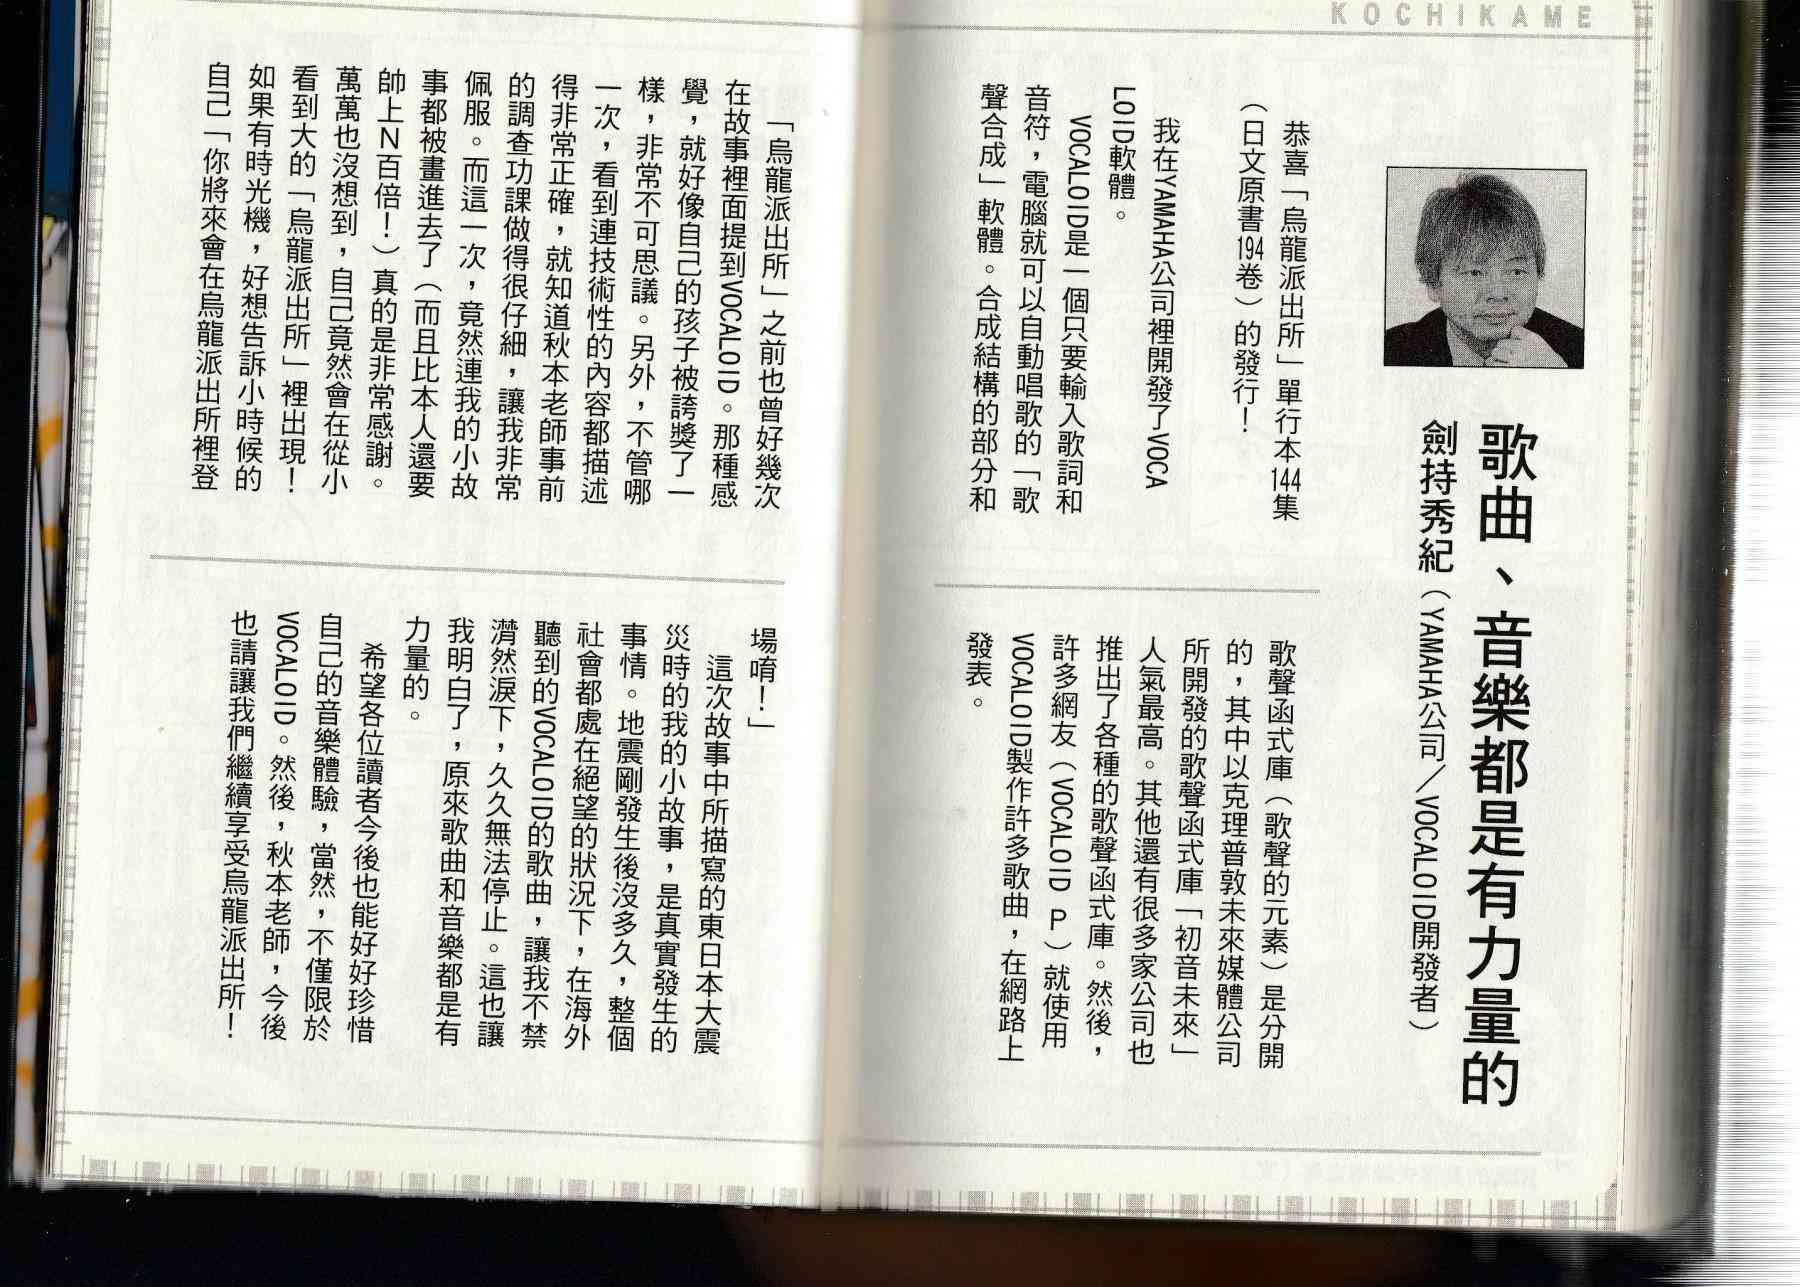 KOCHIKAME
歌曲、音樂都是有力量的
劍持秀紀（YAMAHA公司／VOCALOID開發者）
恭喜「烏龍派出所」單行本144集
（日文原書194卷）的發行！
我在YAMAHA公司裡開發了VOCA
LOID軟體。
VOCALOID是一個只要輸入歌詞和
音符，電腦就可以自動唱歌的「歌
聲合成」軟體。合成結構的部分和
歌聲函式庫（歌聲的元素）是分開
的，其中以克理普敦未來媒體公司
所開發的歌聲函式庫「初音未來」
人氣最高。其他還有很多家公司也
推出了各種的歌聲函式庫。然後，
許多網友（VOCALOID P）就使用
VOCALOID製作許多歌曲，在網路上
發表。
「烏龍派出所」之前也曾好幾次
在故事裡面提到VOCALOID。那種感
覺，就好像自己的孩子被誇獎了一
樣，非常不可思議。另外，不管哪
一次，看到連技術性的內容都描述
得非常正確，就知道秋本老師事前
的調查功課做得很仔細，讓我非常
佩服。而這一次，竟然連我的小故
事都被畫進去了（而且比本人還要
帥上N百倍！）真的是非常感謝。
萬萬也沒想到，自己竟然會在從小
看到大的「烏龍派出所」裡出現！
如果有時光機，好想告訴小時候的
自己「你將來會在烏龍派出所裡登
場唷！」
這次故事中所描寫的東日本大震
災時的我的小故事，是真實發生的
事情。地震剛發生後沒多久，整個
社會都處在絕望的狀況下，在海外
聽到的VOCALOID的歌曲，讓我不禁
潸然淚下，久久無法停止。這也讓
我明白了，原來歌曲和音樂都是有
力量的。
希望各位讀者今後也能好好珍惜
自己的音樂體驗，當然，不僅限於
VOCALOID。然後，秋本老師，今後
也請讓我們繼續享受烏龍派出所！